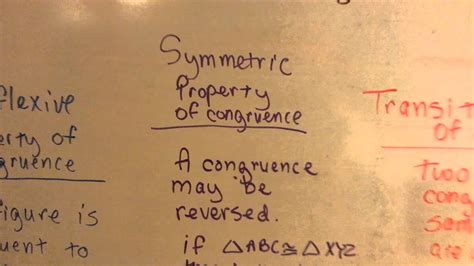 Symmetric
Property
of congruence
A congruence
may be
reversed.
if △ABC≅△XYZ
flexive
erty of
gruence
igure is
uent to
Transit
of
two
cong
sam
are